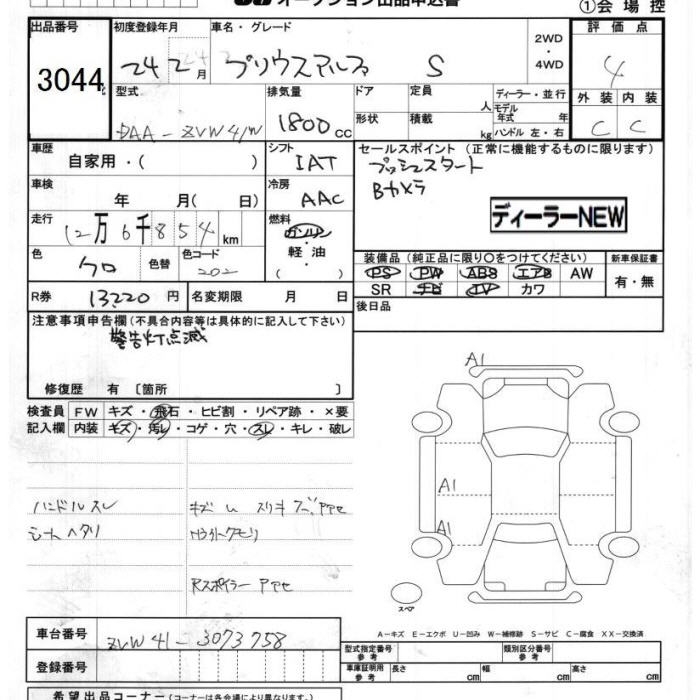 オークション出品申込書
①会場控
出品番号 初度登録年月 車名・グレード 評価点
3044
24 2月 プリウスアルファ S 2WD・4WD 4
型式 排気量 ドア 定員 人 ディーラー・並行 外装 内装
DAA-ZVW41W 1800cc 形状 積載 kg モデル年式 年 ハンドル 左・右 C C
車歴 シフト セールスポイント (正常に機能するものに限ります)
自家用・( ) IAT プッシュスタート
車検 冷房 Bカメラ
年 月( 日) AAC
ディーラーNEW
走行 燃料
12万6千854km ガソリン・軽油・( )
色 色替 色コード 装備品 (純正品に限り○をつけてください) 新車保証書
クロ 202 PS PW ABS エアB AW 有・無
SR ナビ TV カワ
R券 13220円 名変期限 月 日 後日品
注意事項申告欄(不具合内容等は具体的に記入して下さい)
警告灯点滅
修復歴 有 〔箇所 〕
検査員 FW キズ・飛石・ヒビ割・リペア跡・×要
記入欄 内装 キズ・汚レ・コゲ・穴・スレ・キレ・破レ
A1
A1
A1
ハンドルスレ
シートヘタリ
Rスポイラー
スペア
A-キズ E-エクボ U-凹み W-補修跡 S-サビ C-腐食 XX-交換済
車台番号 ZVW41-3073758
登録番号
型式指定番号 参考 類別区分番号 参考
車庫証明用 参考 長さ cm 幅 cm 高さ cm
希望出品コーナー(コーナーは各会場により異なります。)